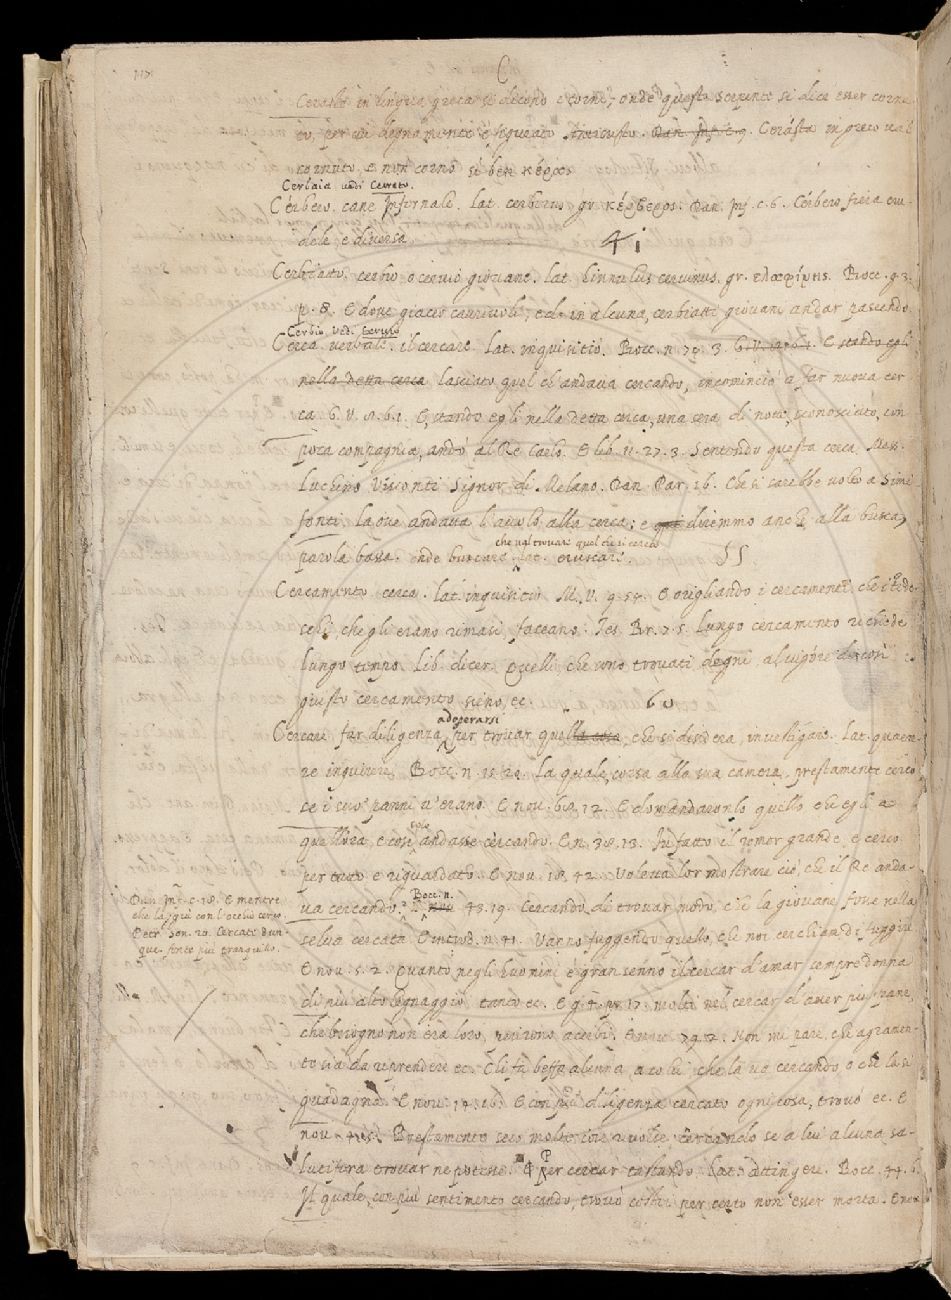 117
C
Ceraste in lingua greca si dicono e corni, onde questo serpente si dice esser cornu
to, per cui degnamente è figurato Dan. Inf. c. 9. Cerasta in greco val
cornuto, e non corno si ben κέρας
Cerbaia vedi Cerreto.
Cérbero. cane infernale. lat. cerberus gr. κέρβερος. Dan. Inf. c. 6. Cérbero fiera cru
dele, e diversa
41
Cerbiatto. cerbio o cervio giovane. lat. hinnulus cervinus. gr. Bocc. g. 3.
p. 8. E dove giacer cavrivoli, ed in alcuna, cerbiatti giovani andar pascendo
Cerbio vedi cervio
Cerca verbale. il cercare. lat. inquisitio. Bocc. n. 79. 3. G. V. E stando egli
nella detta cerca lasciato quel ch'andava cercando, incominciò a far nuova cer
ca. G. V. 6. 1. E, stando egli nella detta cerca, una sera di notte, sconosciuto, con
poca compagnia, andò al Re Carlo. E lib. 11. 27. 3. Sentendo questa cerca Mess.
Luchino Visconti Signor di Melano. Dan. Par. 16. Che si sarebbe volto a Simi
fonti. Là ove andava l'avolo alla cerca; e diremmo anche alla busca,
che val trovar quel che si cerca
parola bassa. onde buscare lat.
55
Cercamento. cerca. lat. inquisitio. M. V. 9. 54. E origliando i cercamenti, che i Tede
schi, che gli erano rimasi, faceano. Tes. Br. 7. 5. Lungo cercamento richiede
lungo tempo. Lib. dicer. Quelli, che sono trovati degni, al vigore di così
giusto cercamento sieno, ec.
60
adoperarsi
Cercare far diligenza, per trovar quella cosa, che si disidera, investigare. lat. quaere
re inquirere. Bocc. n. 15. 24. La quale, corsa alla sua camera, prestamente cercò
se i suo' panni v'erano. E nov. 60. 12. E domandaronlo quello che egli a
solo
quell'ora, e così andasse cercando. E n. 38. 13. Fu fatto il romor grande, e cerco
per tutto e riguardato. E nov. 18. 42. Voleva lor mostrare ciò, che il Re anda-
Bocc. n.
va cercando. E nov. 43. 19. Cercando di trovar modo, che la giovane fosse nella
selva cercata. E introd. n. 41. Vanno fuggendo quello, che noi cerchiam di fuggire
E nov. 5. 2. Quanto negli huomini è gran senno il cercar d'amar sempre donna
di più alto legnaggio, tanto ec. E g. 4. pr. 17. Molti nel cercar d'aver più pane,
che bisogno non era loro, perirono acerbi. E nov. 79. 2. Non mi pare, che agramen-
to sia da riprendere ec. Chi fa beffa alcuna a colui che la va cercando, o che la si
guadagna. E nov. 14. 16. E con più diligenza cercato ogni cosa, trovò ec. E
nov. 41. 5. Prestamente seco molte volte cercando se a lui alcuna sa-
lute fra trovar ne potesse. ¶ Per cercar tastando. lat. attingere. Bocc. 94. 6.
Il quale, con più sentimento cercando, trovò costei per certo non esser morta. E nov.
Dan. Inf. c. 18. E mentre
che laggiù con l'occhio cerco
Petr. Son. 20. Cercate dun-
que fonte più tranquillo.